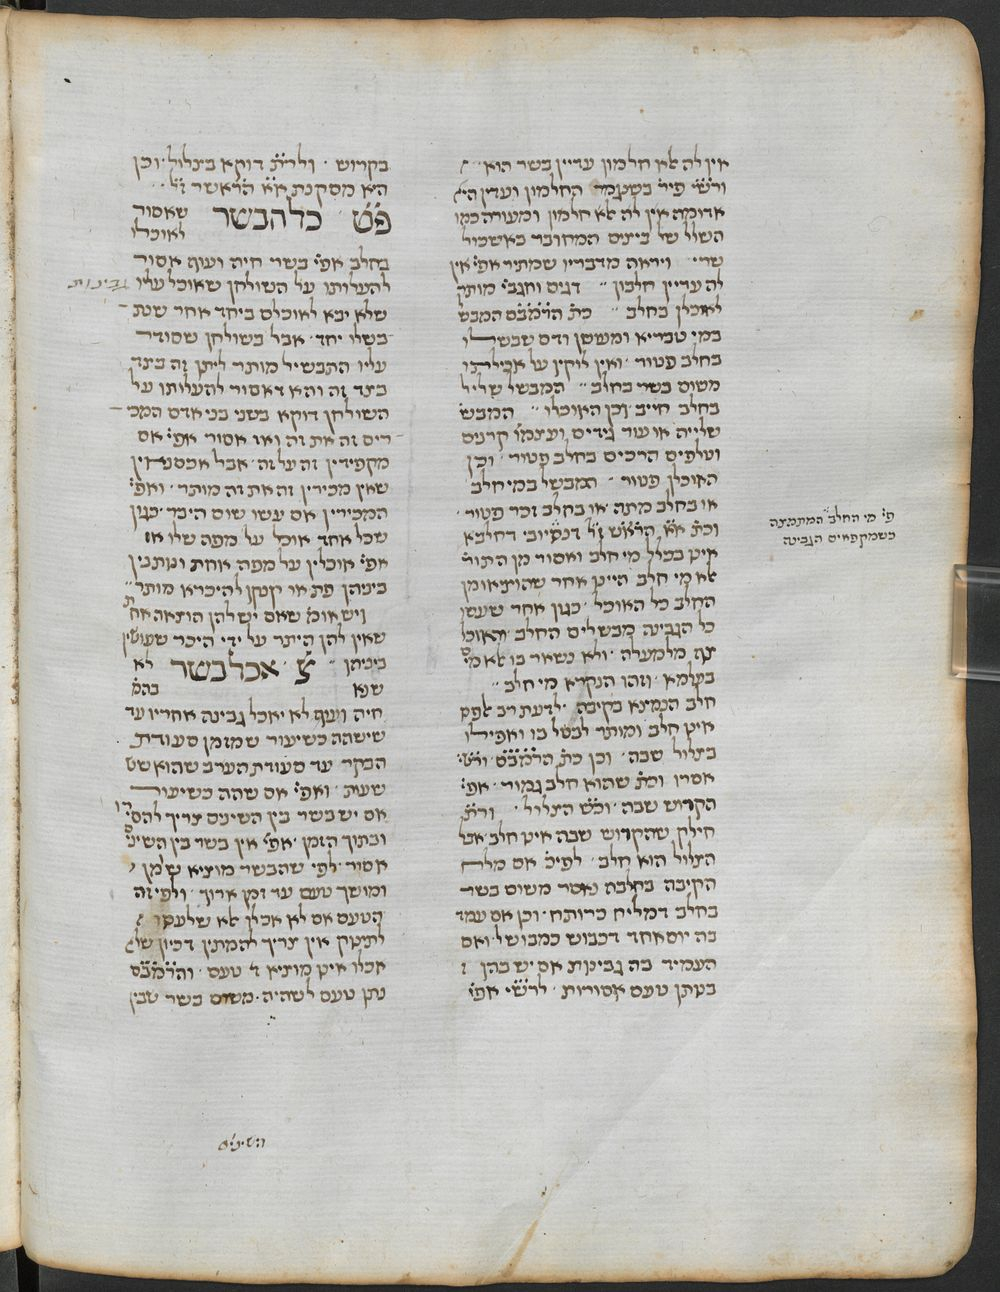 אין לה אלא חלמון עדיין בשר הוא
ורש״י פיר׳ בשנגמר החלמון ועדין היא
אדומה אין לה אלא חלמון ומעורה כמו
השלל של ביצים המחובר באשכול
שרי ויראה מדבריו שמתיר אפי׳ אין
לה עדיין חלבון דגים וחגבי׳ מותר
לאוכלן בחלב כת׳ הרמב״ם המבשל
במי טבריא ומעושן ודם שבשלו
בחלב פטור ואין לוקין על אכילתו
משום בשר בחלב המבשל שליל
בחלב חייב וכן האוכלו המבש׳
שלייה או עור גידים ועצמו׳ קרנים
וטלפים הרכים בחלב פטור וכן
האוכלן פטור המבשל במי חלב
או בחלב מתה או בחלב זכר פטור
וכת׳ א״א הרא״ש ז״ל דנסיובי דחלבא
אינן בכלל מי חלב ואסור מן התור׳
אלא מי חלב היינו אחר שהוציאו מן
החלב כל האוכל כגון אחר שעשו
כל הגבינה מבשלים החלב והאוכל
צף מלמעלה ולא נשאר בו אלא מי׳
בעלמא וזהו הנקרא מי חלב
חלב הנמצא בקיבה לדעת רב אלפס
אינו חלב ומותר לבשל בו ואפילו
בצלול שבה וכן כת׳ הרמב״ם ורש״י
אסרו וכת׳ שהוא חלב גמור אפי׳
הקרוש שבה וכ״ש הצלול ור״ת
חילק שהקרוש שבה אינו חלב אבל
הצלול הוא חלב לפיכ׳ אם מלח
הקיבה בחלבה נאסר משום בשר
בחלב דמליח כרותח וכן אם עמד
בה יום אחד דכבוש כמבושל ואם
העמיד בה גבינות אם יש בהן
בנתן טעם אסורות לרש״י אפי׳
בקרוש ולר״ת דוקא בצלול וכן
היא מסקנת א״א הרא״ש ז״ל
פ״ט כל הבשר שאסור
לאוכלו
בחלב אפי׳ בשר חיה ועוף אסור
להעלותו על השולחן שאוכל עליו
גבינות
שלא יבא לאוכלם ביחד אחר שנת
בשלו יחד אבל בשולחן שסודר
עליו התבשיל מותר ליתן זה בצד
בצד זה והא דאסור להעלותו על
השולחן דוקא בשני בני אדם המכי
רים זה את זה ואז אסור אפי׳ אם
מקפידין זה על זה אבל אכסנאין
שאין מכירין זה את זה מותר ואפי׳
המכירין אם עשו שום היכר כגון
שכל אחד אוכל על מפה שלו או
אפי׳ אוכלין על מפה אחת ונותנין
ביניהן פת או קנקן להיכרא מותר
ויש אומ׳ שאם יש להן הוצאה אחת
שאין להן היתר על ידי היכר שעושין
ביניהן צ׳ אכל בשר לא
שנא בהמ׳
חיה ועוף לא יאכל גבינה אחריו עד
שישהה כשיעור שמזמן סעודת
הבקר עד סעודת הערב שהוא שש
שעות ואפי׳ אם שהה כשיעור
אם יש בשר בין השינים צריך להסירו
ובתוך הזמן אפי׳ אין בשר בין השיני׳
אסור לפי שהבשר מוציא שומן
ומושך טעם עד זמן ארוך ולפי זה
הטעם אם לא אכלו אלא שלעסו
לתינוק אין צריך להמתין דכיון שלא
אכלו אינו מוציא טעם והרמב״ם
נתן טעם לשהיה משום בשר שבין
פי׳ מי החלב המתמצה
כשמקפאים הגבינה
השינים